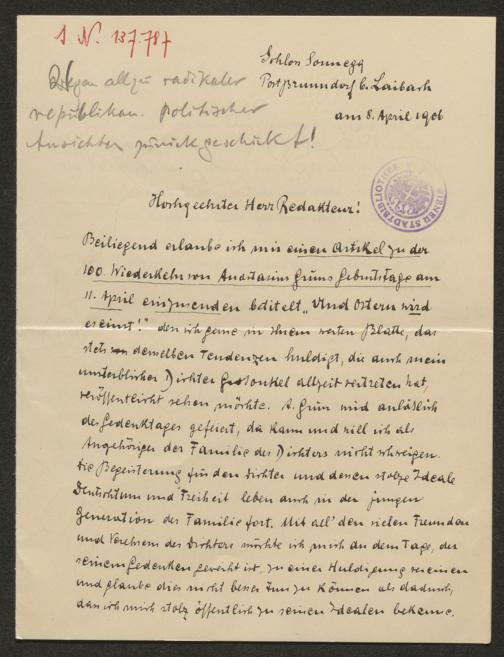 I. N. 137.787
Schloss Sonnegg
Post Brunndorf b. Laibach
am 8. April 1906
Wegen allzu radikaler
republikan. politischer
Ansichten zurückgeschickt!
WIENER STADTBIBLIOTHEK
Hochgeehrter Herr Redakteur!
Beiliegend erlaube ich mir einen Artikel zu der
100. Wiederkehr von Anastasius Grüns Geburtstage am
11. April einzusenden betitelt „Und Ostern wird
es einst!" den ich gerne in Ihrem werten Blatte, das
stets denselben Tendenzen huldigt, die auch mein
unsterblicher Dichter Grossonkel allzeit vertreten hat,
veröffentlicht sehen möchte. A. Grün wird anläßlich
des Gedenktages gefeiert, da kann und will ich als
Angehöriger der Familie des Dichters nicht schweigen.
Die Begeisterung für den Dichter und dessen stolze Ideale
Deutschtum und Freiheit leben auch in der jungen
Generation der Familie fort. Mit all' den vielen Freunden
und Verehrern des Dichters möchte ich mich an dem Tage, der
seinem Gedenken geweiht ist, zu einer Huldigung vereinen
und glaube dies nicht besser tun zu können als dadurch,
dass ich mich stolz öffentlich zu seinen Idealen bekenne.